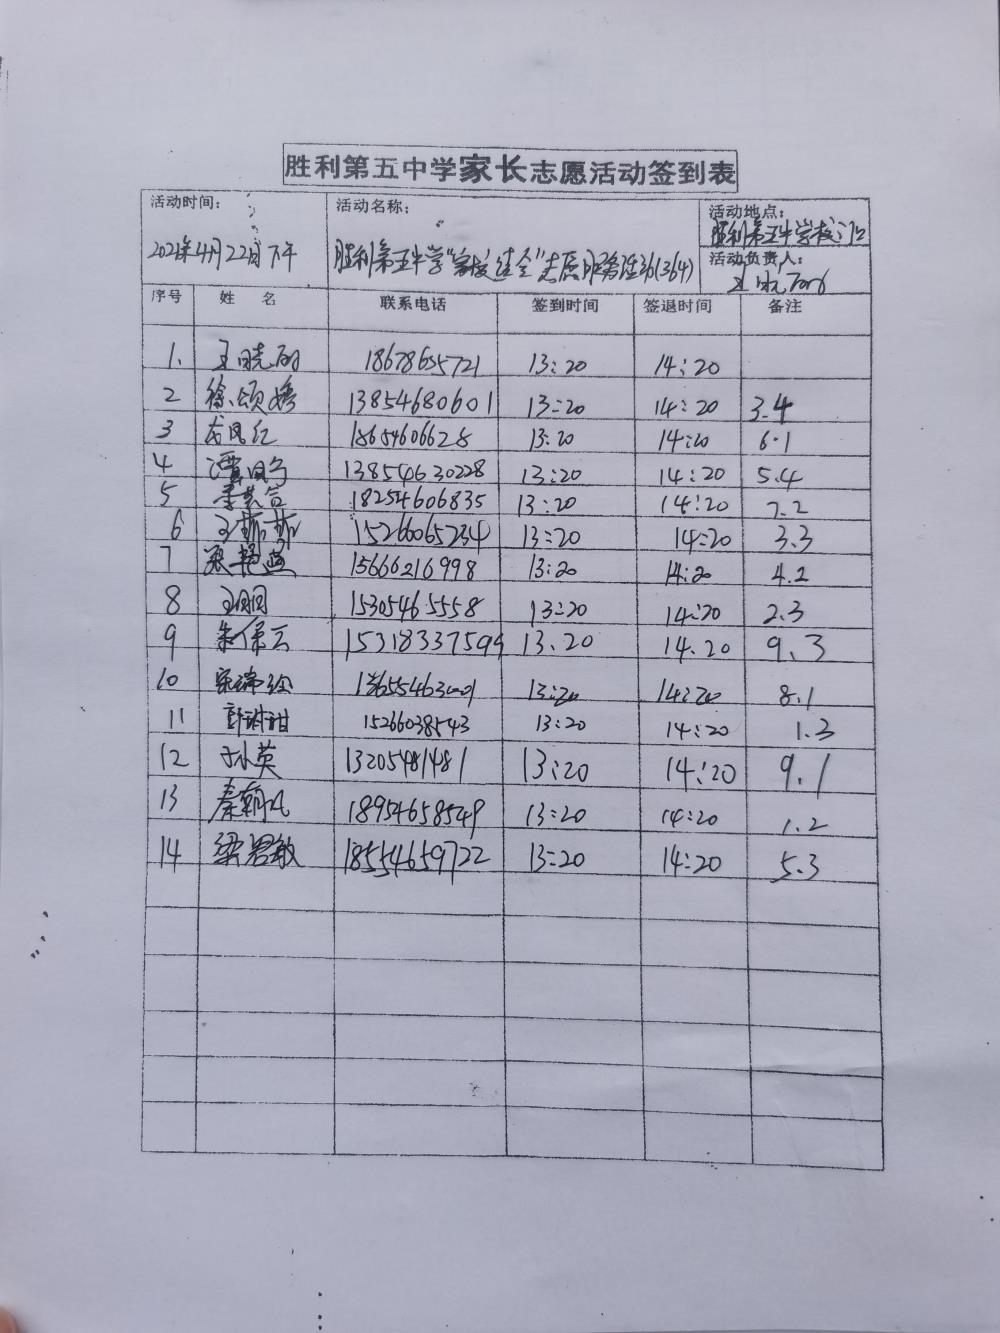 胜利第五中学家长志愿活动签到表
活动时间： 活动名称： 活动地点：
胜利第五中学校门口
2021年4月22日下午 胜利第五中学“家校结合”志愿服务活动(364) 活动负责人：
序号 姓 名 联系电话 签到时间 签退时间 备注
1. 王晓丽 18678655721 13:20 14:20
2 徐颂娉 13854680601 13:20 14:20 3.4
3 龙凤红 18654606628 13:20 14:20 6.1
4 13854630228 13:20 14:20 5.4
5 18254606835 13:20 14:20 7.2
6 王茹茹 15266065234 13:20 14:20 3.3
7 郑艳燕 15666216998 13:20 14:20 4.2
8 王丽 15305465558 13:20 14:20 2.3
9 朱保云 15318337599 13.20 14.20 9.3
10 宋瑞玲 13:20 14:20 8.1
11 彭甜甜 15266038543 13:20 14:20 1.3
12 于小英 13205481481 13:20 14:20 9.1
13 秦朝凤 18954658549 13:20 14:20 1.2
14 梁君敏 18554659722 13:20 14:20 5.3